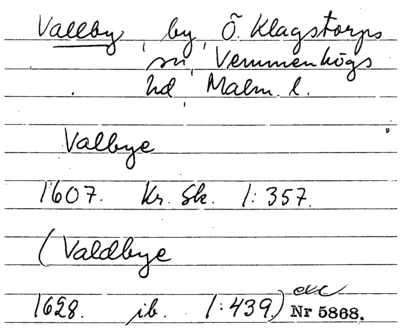 Vallby, by, Ö. Klagstorps
sn, Vemmenhögs
hd, Malm. l.
Valbye
1607. Kr. Sk. 1:357.
(Valdbye
1628. ib. 1:439.) Nr 5868.